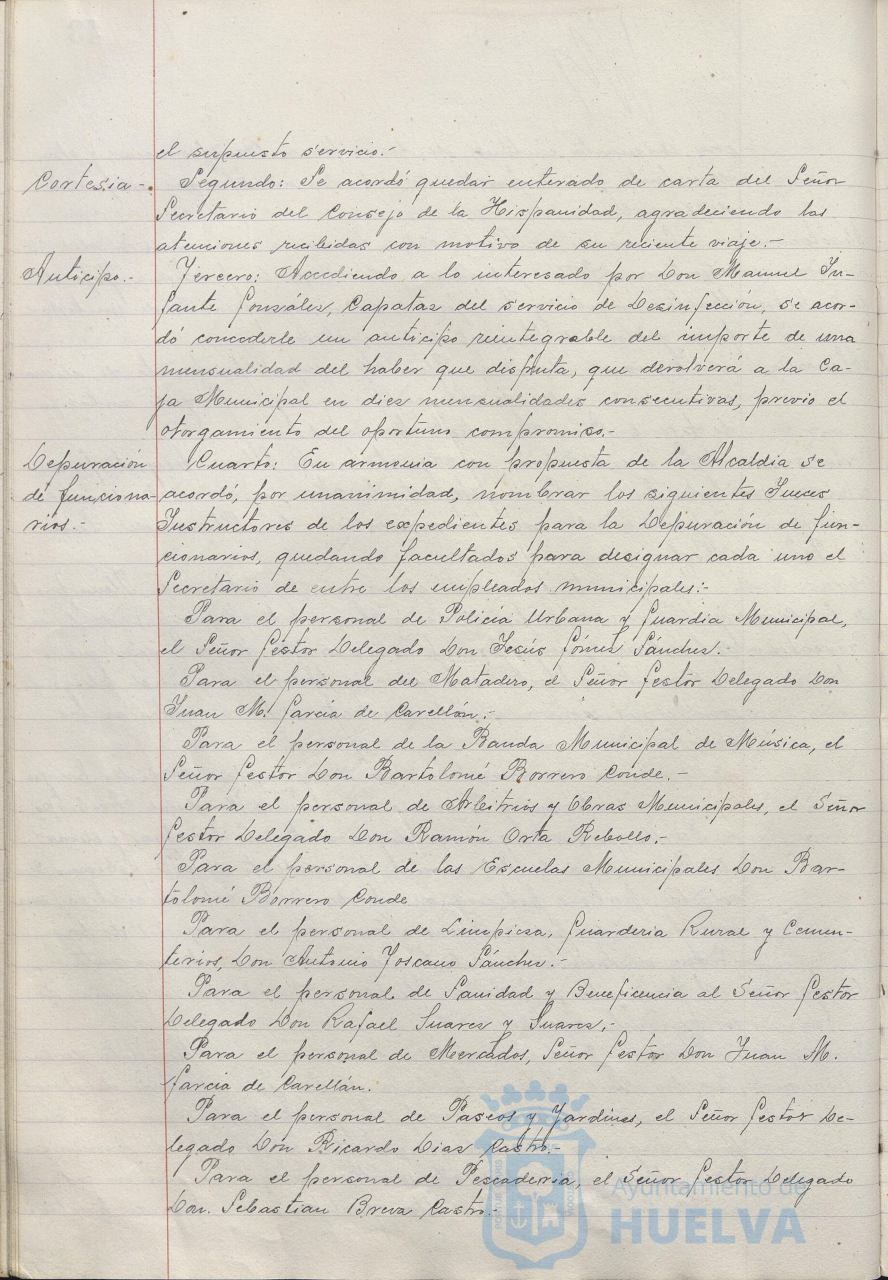 el supuesto servicio.-
Cortesia-. Segundo: Se acordó quedar enterado de carta del Señor
Secretario del Consejo de la Hispanidad, agradeciendo las
atenciones recibidas con motivo de su reciente viaje.-
Anticipo.- Tercero: Accediendo a lo interesado por Don Manuel In-
fante González, Capataz del servicio de Desinfección, se acor-
dó concederle un anticipo reintegrable del importe de una
mensualidad del haber que disfruta, que devolverá a la Ca-
ja Municipal en diez mensualidades consecutivas, previo el
otorgamiento del oportuno compromiso.-
Depuración Cuarto: En armonia con propuesta de la Alcaldia se
de funciona- acordó, por unanimidad, nombrar los siguientes Jueces
rios.- Instructores de los expedientes para la Depuración de fun-
cionarios, quedando facultados para designar cada uno el
Secretario de entre los empleados municipales:-
Para el personal de Policía Urbana y Guardia Municipal,
el Señor Gestor Delegado Don Jesús Gómez Sánchez.-
Para el personal del Matadero, el Señor Gestor Delegado Don
Juan M. García de Carellán.-
Para el personal de la Banda Municipal de Música, el
Señor Gestor Don Bartolomé Borrero Conde.-
Para el personal de Arbitrios y Obras Municipales, el Señor
Gestor Delegado Don Ramón Orta Rebollo.-
Para el personal de las Escuelas Municipales Don Bar-
tolomé Borrero Conde
Para el personal de Limpieza, Guarderia Rural y Cemen-
terios, Don Antonio Toscano Sánchez.-
Para el personal de Sanidad y Beneficencia al Señor Gestor
Delegado Don Rafael Suarez y Suarez.-
Para el personal de Mercados, Señor Gestor Don Juan M.
García de Carellán.
Para el personal de Paseos y Jardines, el Señor Gestor De-
legado Don Ricardo Diaz Castro.-
Para el personal de Pescaderia, el Señor Gestor Delegado
Don. Sebastian Breva Castro.-
Ayuntamiento de
HUELVA